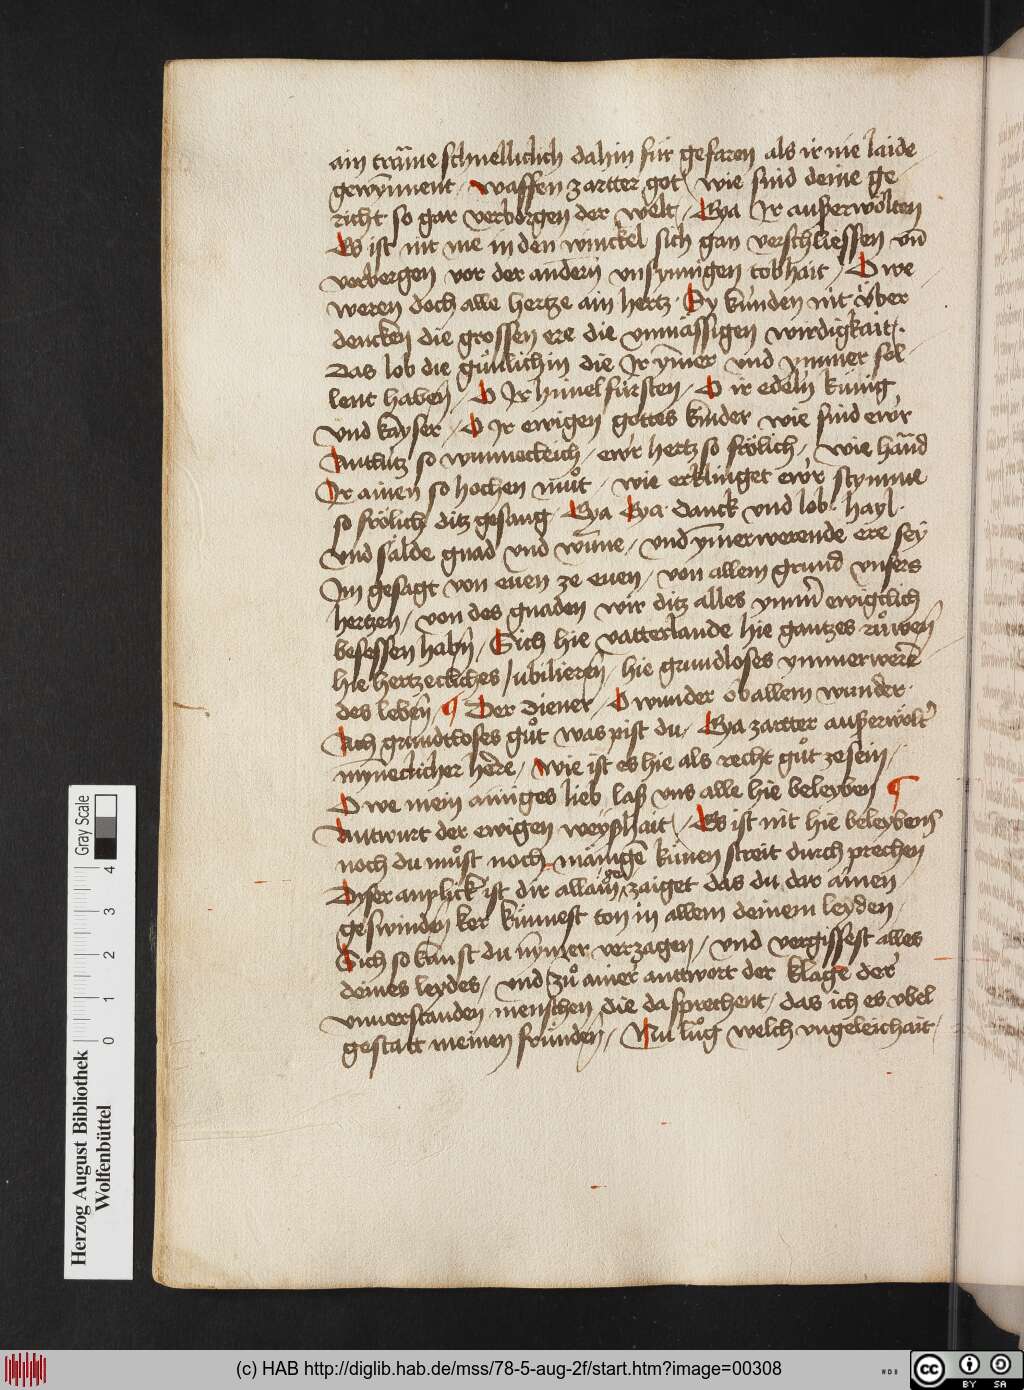 ain träme schnelliclich dahin für gefaren als ir nie laide
gewyn̄ent / waffen zartter got / wie sind deine ge
richt so gar verborgen der welt / Eya Ir außerwölten
Es ist nit me in den winckel sich gan verschliessen vn̄
verbergen vor der andern vnsynnigen tobhait / O we
weren doch alle hertze ain hertz · Sy kunden nit v̈ber
dencken die grossen ere die vnmässigen wirdigkait / ·
Das lob die gu̇nlichin die Ir ym̄er vnd ymmer söl
lent haben / O Ir himel fürsten / O ir edeln künig
vnd kayser / O Ir ewigen gottes kinder wie sind ewr
Antlutz so wunnecleich / ewr hertz so frölich / wie hand
Ir ainen so hochen muͦt / wie erklinget ewr stymme
so frölich ditz gesang · Eya Eya danck vnd lob · hayl ·
vnd sälde gnad vnd wūne / vnd ym̄erwerende ere sey
Im gesagt von ewen ze ewen / von allem grund vnsers
hertzen / von des gnaden wir ditz alles ymm̄ ewigclich
besessen habn̄ / Sich hie vatterlande hie gantzes ruͦwen
hie hertzeckliches Iubilieren / hie grundloses ymmerwerēt
des leben̄ / ¶ Der diener / O wunder ob allem wunder ·
Ach grundtloses guͦt was pist du / Eya zartter außerwölt̄
mynecklicher here / wie ist es hie als recht guͦt ze sein /
O we mein ainiges lieb laß vns alle hie beleyben ¶
Antwurt der ewigen weyßhait / Es ist nit hie beleybens
noch du muͦst noch mānigē kūnen streit durch prechen
Dyser anplick ist dir allain gezaiget das du dar ainen
geswinden ker künnest ton in allem deinem leyden
Sich so kanst du nym̄er verzagen / vnd vergissest alles
deines leydes / vnd zuͦ ainer anttwort der klage der
vnuerstanden menschen die da sprechent / das ich es vbel
gestatt meinen fründen / Nu luͦg welch vngeleichait /
Herzog August Bibliothek
Wolfenbüttel
0 1 2 3 4
Gray Scale
(c) HAB http://diglib.hab.de/mss/78-5-aug-2f/start.htm?image=00308
WDB
cc BY SA